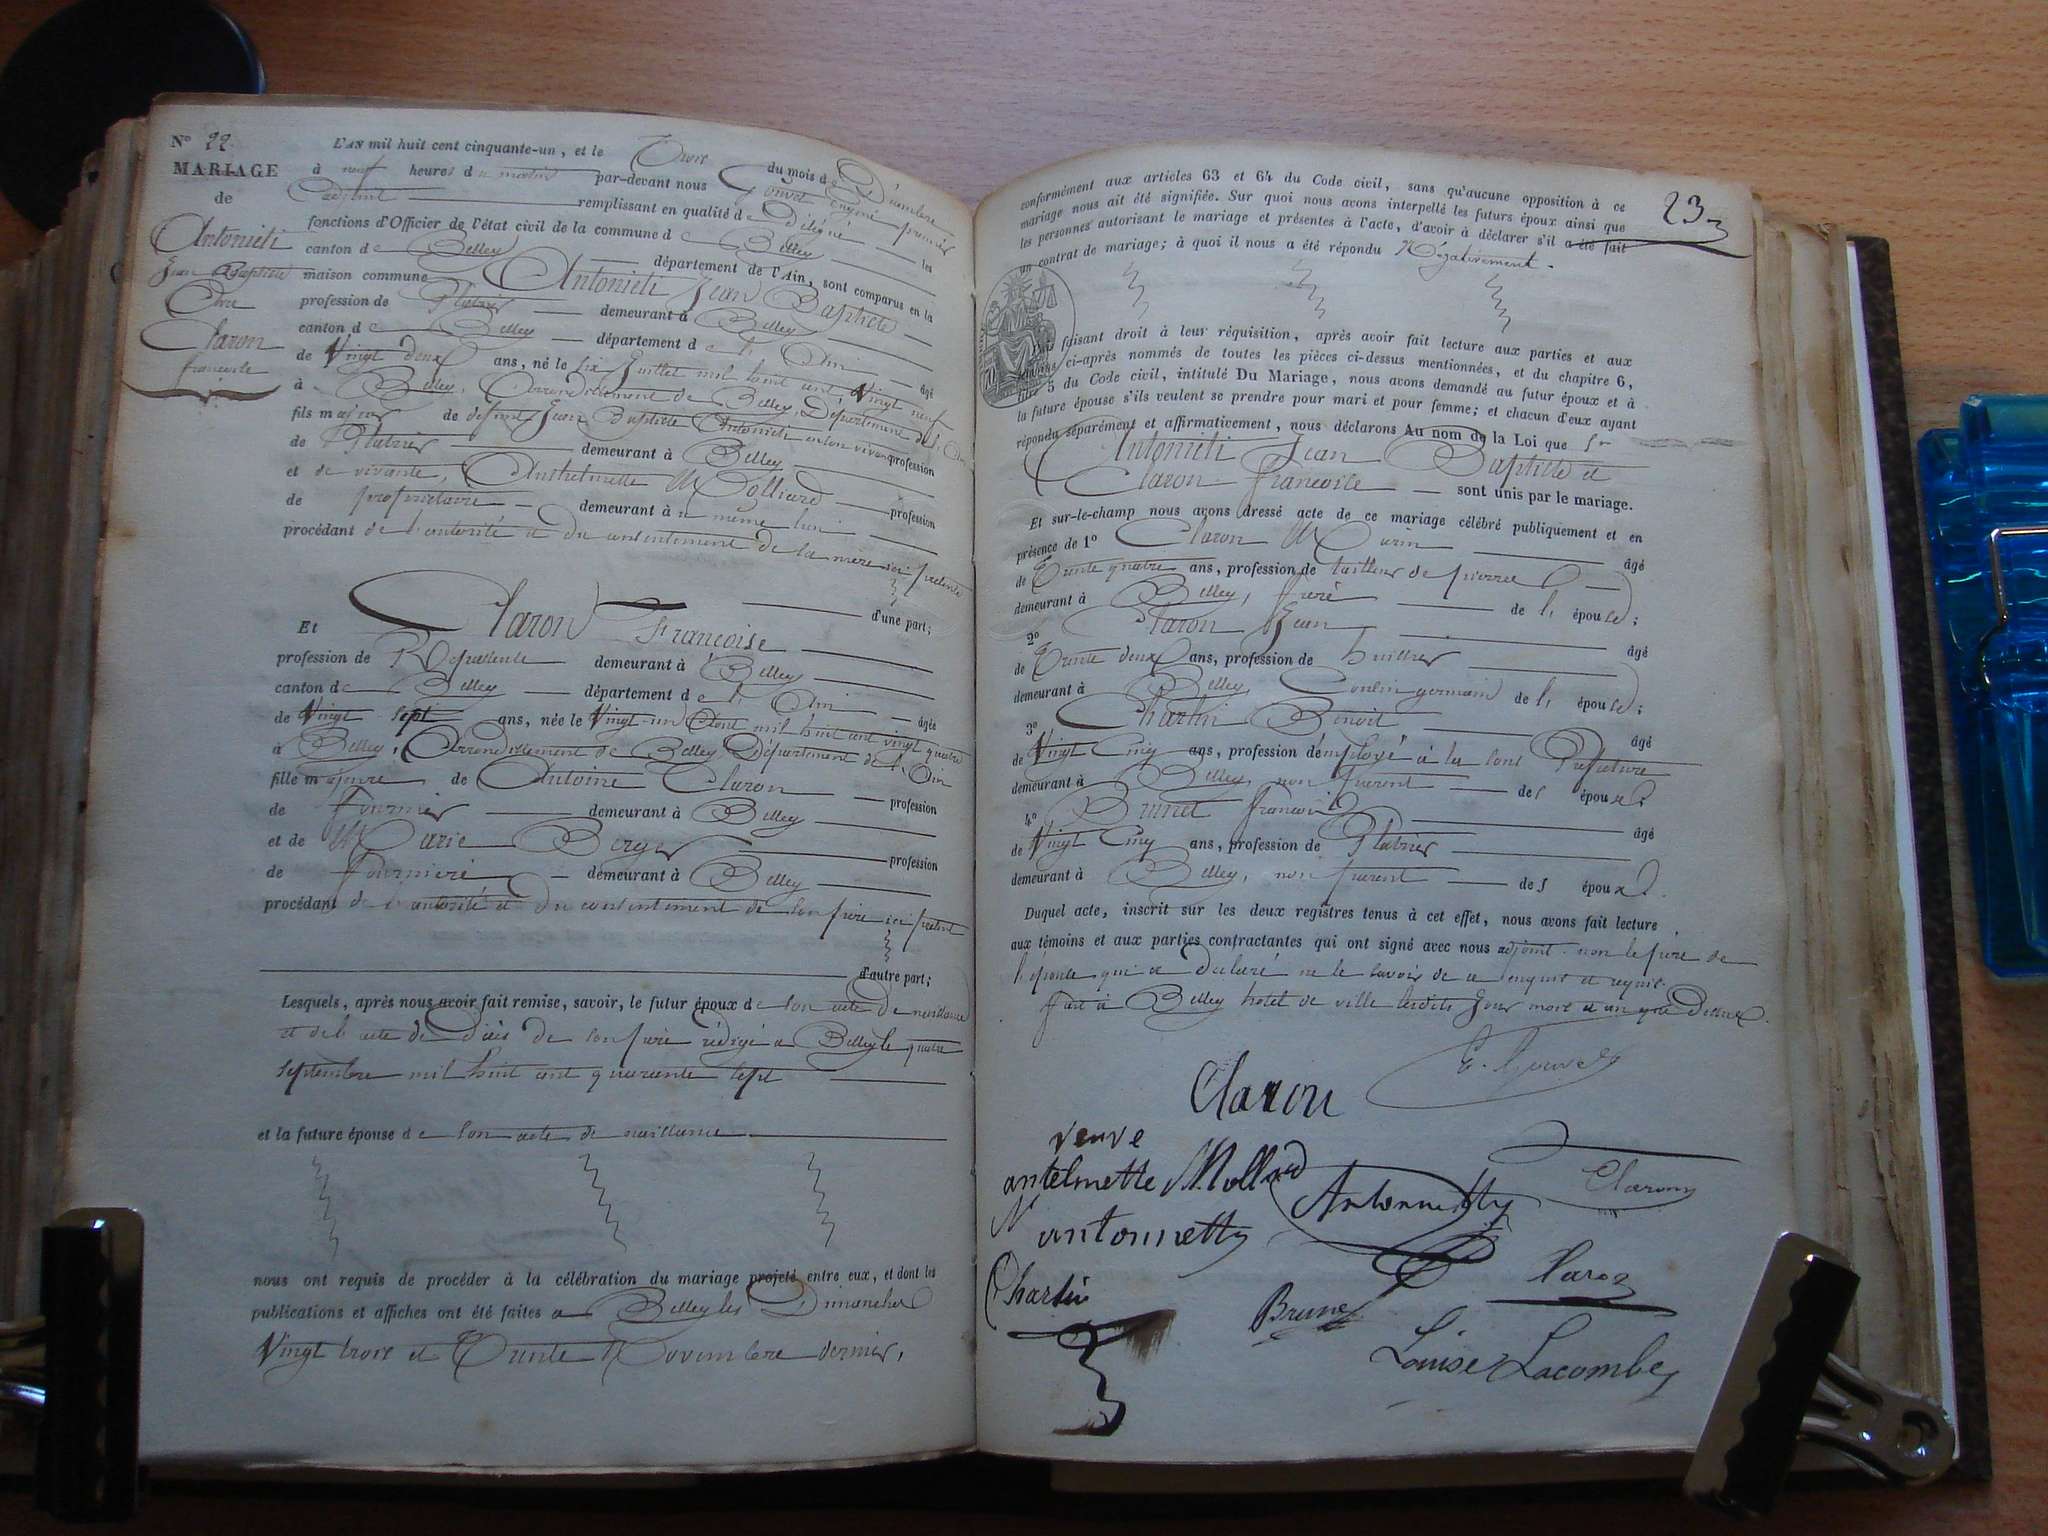 N° 22.
MARIAGE
de
Antonieti
Jean Baptiste
Avec
Claron
françoise
L'AN mil huit cent cinquante-un, et le Trois du mois de Décembre
à neuf heures du matin par-devant nous Gouvet premier
adjoint remplissant en qualité de Délégué les
fonctions d'Officier de l'état civil de la commune de Belley
canton de Belley département de l'Ain, sont comparus en la
maison commune Antonieti Jean Baptiste
profession de Platrier demeurant à Belley
canton de Belley département de l'Ain âgé
de Vingt deux ans, né le six Juillet mil huit cent Vingt neuf
à Belley, Arrondissement de Belley, Département de l'Ain
fils majeur de defunt Jean Baptiste Antonieti en son vivant profession
de Platrier demeurant à Belley
et de vivante, Anthelmette Molliard profession
de propriétaire demeurant à même lieu
procédant de l'autorité et du consentement de la mère ici présente
d'une part;
Et Claron Françoise
profession de Repasseuse demeurant à Belley
canton de Belley département de l'Ain âgée
de Vingt sept ans, née le Vingt un Aout mil huit cent vingt quatre
à Belley, Arrondissement de Belley Département de l'Ain
fille majeure de Antoine Claron profession
de Fournier demeurant à Belley
et de Marie Berger profession
de Fournière demeurant à Belley
procédant de l'autorité et du consentement de son père ici présent
d'autre part;
Lesquels, après nous avoir fait remise, savoir, le futur époux de son acte de naissance
et de l'acte de Décès de son père rédigé à Belley le quatre
septembre mil huit cent quarante sept
et la future épouse de son acte de naissance
nous ont requis de procéder à la célébration du mariage projeté entre eux, et dont les
publications et affiches ont été faites a Belley les Dimanches
Vingt trois et Trente Novembre dernier,
23
conformément aux articles 63 et 64 du Code civil, sans qu'aucune opposition à ce
mariage nous ait été signifiée. Sur quoi nous avons interpellé les futurs époux ainsi que
les personnes autorisant le mariage et présentes à l'acte, d'avoir à déclarer s'il a été fait
un contrat de mariage; à quoi il nous a été répondu Négativement.
faisant droit à leur réquisition, après avoir fait lecture aux parties et aux
ci-après nommés de toutes les pièces ci-dessus mentionnées, et du chapitre 6,
titre 5 du Code civil, intitulé Du Mariage, nous avons demandé au futur époux et à
la future épouse s'ils veulent se prendre pour mari et pour femme; et chacun d'eux ayant
répondu séparément et affirmativement, nous déclarons Au nom de la Loi que Sr
Antonieti Jean Baptiste et
Claron Françoise sont unis par le mariage.
Et sur-le-champ nous avons dressé acte de ce mariage célébré publiquement et en
présence de 1° Claron Marin âgé
de Trente quatre ans, profession de tailleur de pierres
demeurant à Belley, frère de l'épouse;
2° Claron Jean âgé
de Trente deux ans, profession de huissier
demeurant à Belley Cousin germain de l'épouse;
3° Chartin Benoit âgé
de Vingt Cinq ans, profession d'employé à la sous Préfecture
demeurant à Belley, non parent de l'époux;
4° Brunet françois âgé
de Vingt Cinq ans, profession de Platrier
demeurant à Belley, non parent de l'époux.
Duquel acte, inscrit sur les deux registres tenus à cet effet, nous avons fait lecture
aux témoins et aux parties contractantes qui ont signé avec nous adjoint non le père de
l'épouse qui a déclaré ne le savoir de ce enquis et requis.
fait à Belley hotel de ville lesdits Jour mois et an que Dessus.
E. Gouvet
Claron
veuve
antelmette Mollard
Antonnetty
Claron
N antonnetty
Chartin
Brunet
Claron
Louise Lacombe